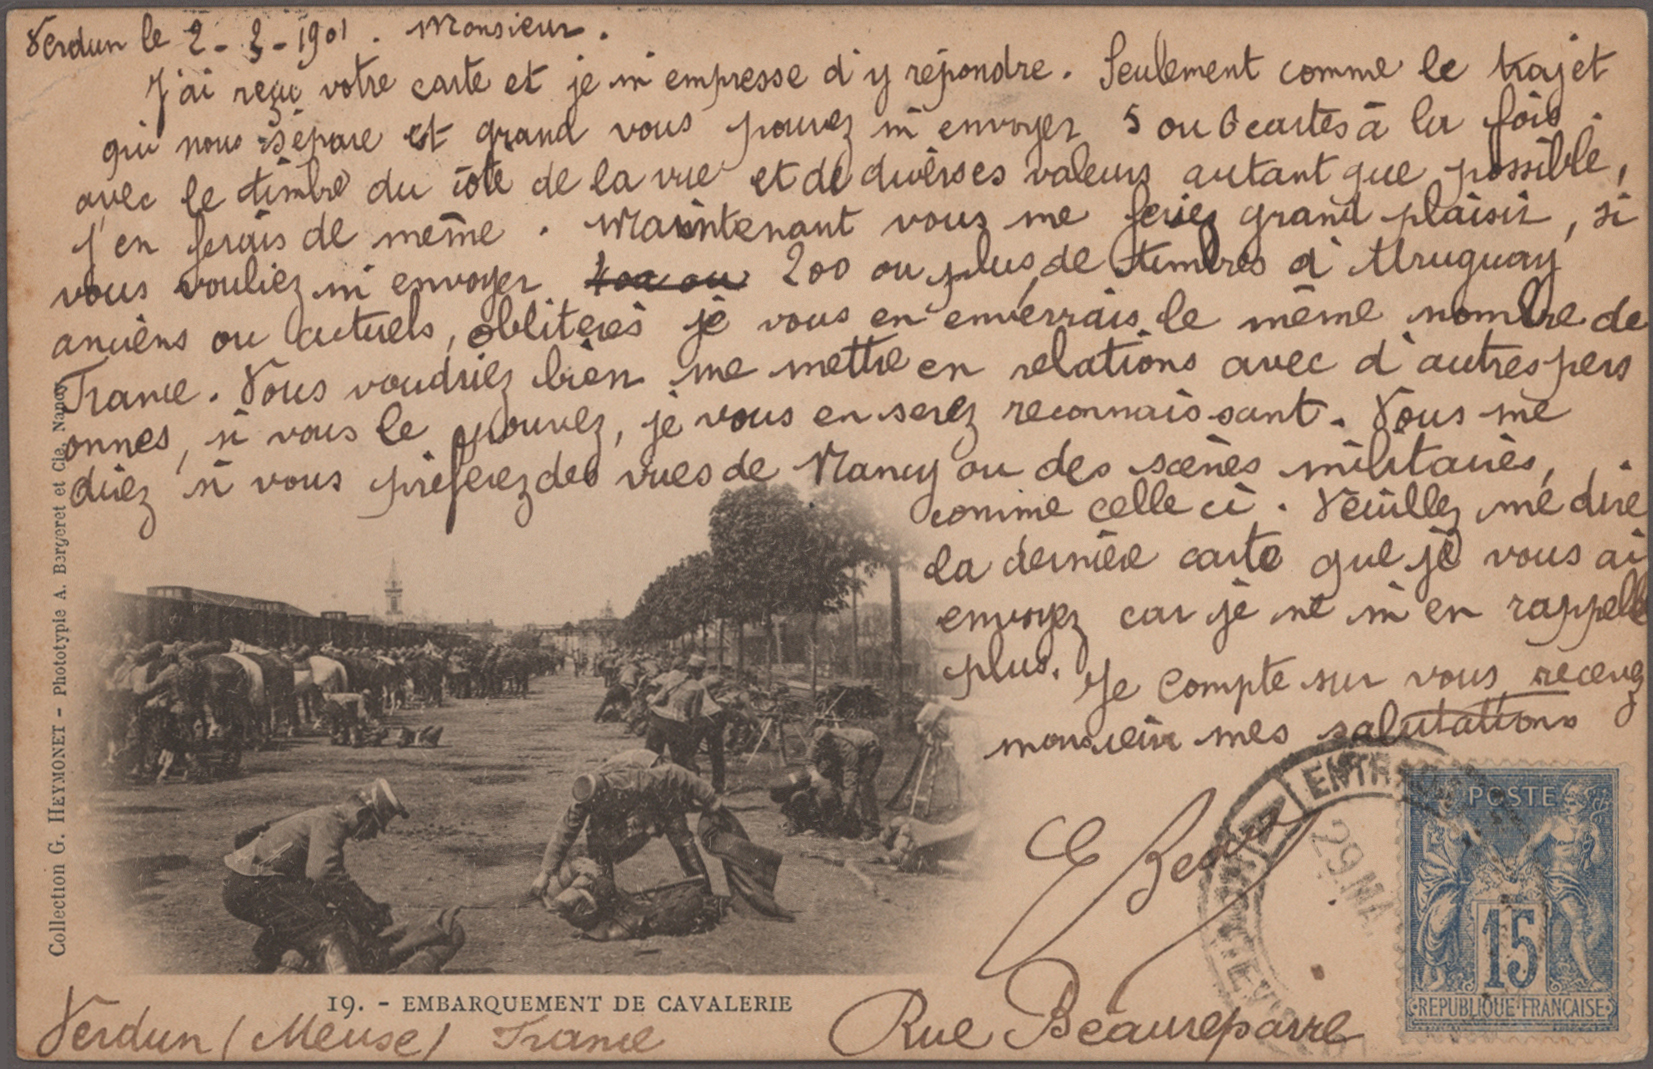 Verdun le 2-3-1901. Monsieur.
J'ai reçu votre carte et je m'empresse d'y répondre. Seulement comme le trajet
qui nous sépare est grand vous pouvez m'envoyer 5 ou 6 cartes à la fois.
avec le timbre du côté de la vue et de diverses valeurs autant que possible,
j'en ferais de même. Maintenant vous me feriez grand plaisir, si
vous vouliez m'envoyer 200 ou plus, de timbres d'Uruguay
anciens ou actuels, oblitérés je vous en enverrais le même nombre de
France. Vous voudriez bien me mettre en relations avec d'autres pers
onnes, si vous le pouvez, je vous en serez reconnaissant. Vous me
direz si vous préferez des vues de Nancy ou des scènes militaires,
comme celle ci. Veuillez me dire
la dernière carte que je vous ai
envoyez car je ne m'en rappelle
plus. Je compte sur vous, recevez
monsieur mes salutations
E
Rue Beaurepaire
Verdun (Meuse) France
19. - EMBARQUEMENT DE CAVALERIE
Collection G. HEYMONET - Phototypie A. Bergeret et Cie, Nancy
POSTE
15
REPUBLIQUE FRANÇAISE
29 MA